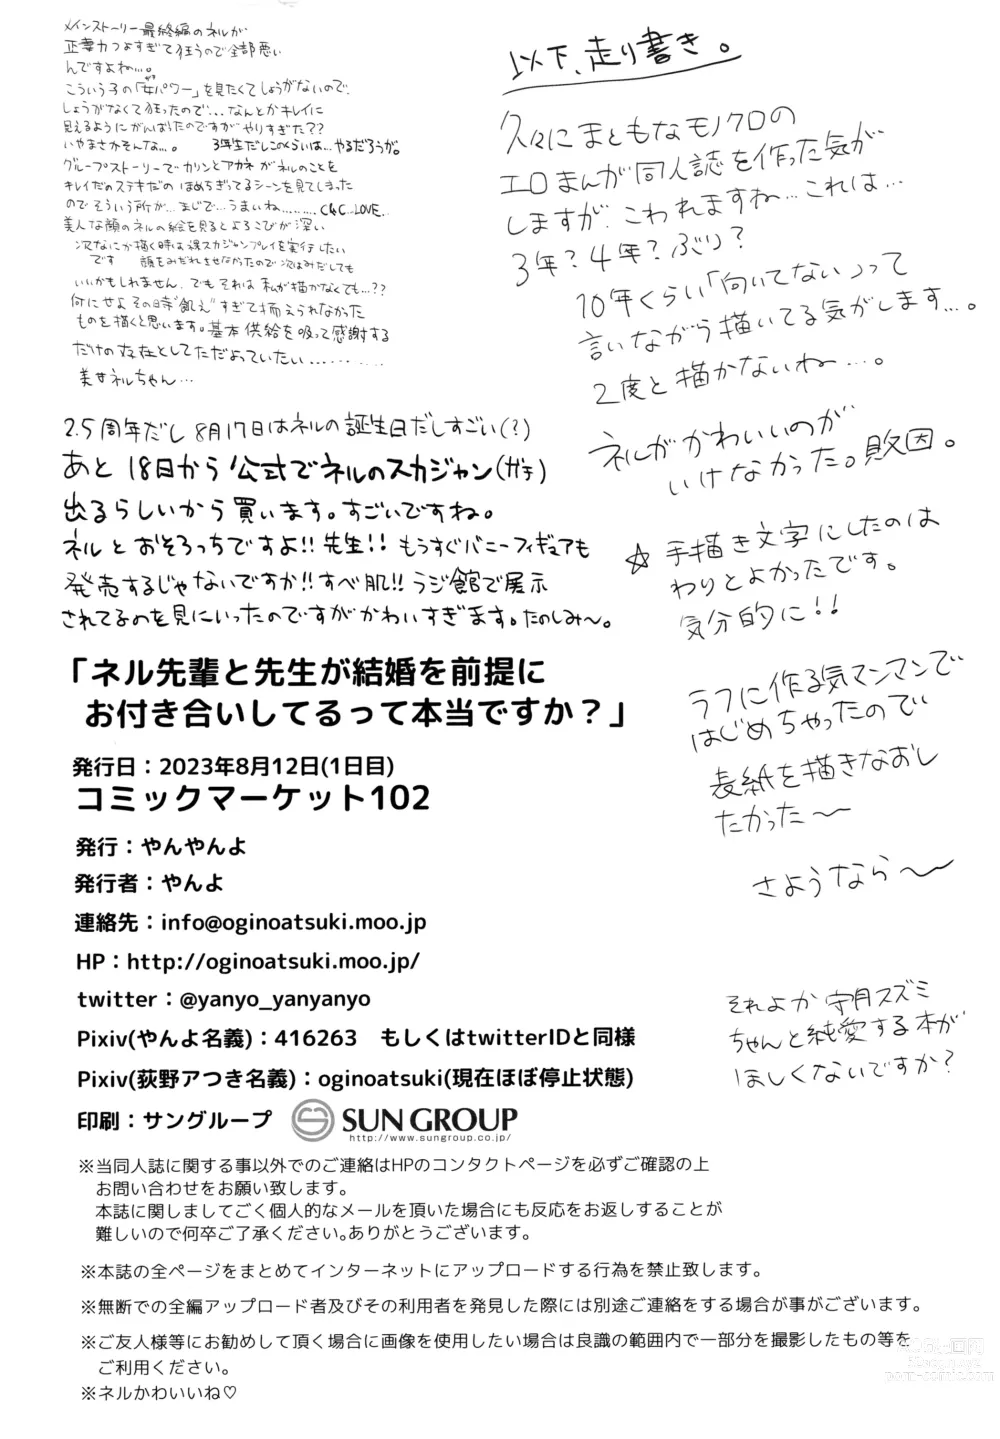 メインストーリー最終編のネルが
正妻力つよすぎて狂うので全部悪い
んですよね…。
こういう子の「女パワー」を見たくてしょうがないので、
しょうがなくて狂ったので…なんとかキレイに
見えるようにがんばったのですがやりすぎた??
いやまさかそんな…。 3年生だしこのくらいは…やるだろうが。
グループストーリーでカリンとアカネがネルのことを
キレイだのステキだの ほめちぎってるシーンを見てしまった
のでそういう所が…まじで…うまいね………C&C…LOVE…
美人な顔のネルの絵を見るとよろこびが深い
次なにか描く時は裸スカジャンプレイを実行したい
です 顔をみだれさせなかったので次はみだしても
いいかもしれません、でもそれは私が描かなくても…??
何にせよその時"飢え"すぎて抑えられなかった
ものを描くと思います。基本供給を吸って感謝する
だけの存在としてただよっていたい…………
美女ネルちゃん…
2.5周年だし8月17日はネルの誕生日だしすごい(?)
あと18日から公式でネルのスカジャン(ガチ)
出るらしいから買います。すごいですね。
ネルとおそろっちですよ!!先生!!もうすぐバニーフィギュアも
発売するじゃないですか!!すべ肌!!ラジ館で展示
されてるのを見にいったのですがかわいすぎます。たのしみ〜。
以下、走り書き。
久々にまともなモノクロの
エロまんが同人誌を作った気が
しますが、こわれますね…これは…
3年?4年?ぶり?
10年くらい「向いてない」って
言いながら描いてる気がします…。
2度と描かないね…。
ネルがかわいいのが
いけなかった。敗因。
☆手描き文字にしたのは
わりとよかったです。
気分的に!!
ラフに作る気マンマンで
はじめちゃったので
表紙を描きなおし
たかった〜
さようなら〜
それよか 守月スズミ
ちゃんと純愛する本が
ほしくないですか?
「ネル先輩と先生が結婚を前提に
お付き合いしてるって本当ですか？」
発行日：2023年8月12日(1日目)
コミックマーケット102
発行：やんやんよ
発行者：やんよ
連絡先：info@oginoatsuki.moo.jp
HP：http://oginoatsuki.moo.jp/
twitter：@yanyo_yanyanyo
Pixiv(やんよ名義)：416263　もしくはtwitterIDと同様
Pixiv(荻野アつき名義)：oginoatsuki(現在ほぼ停止状態)
印刷：サングループ SUN GROUP
http://www.sungroup.co.jp/
※当同人誌に関する事以外でのご連絡はHPのコンタクトページを必ずご確認の上
お問い合わせをお願い致します。
本誌に関しましてごく個人的なメールを頂いた場合にも反応をお返しすることが
難しいので何卒ご了承ください。ありがとうございます。
※本誌の全ページをまとめてインターネットにアップロードする行為を禁止致します。
※無断での全編アップロード者及びその利用者を発見した際には別途ご連絡をする場合が事がございます。
※ご友人様等にお勧めして頂く場合に画像を使用したい場合は良識の範囲内で一部分を撮影したもの等を
ご利用ください。
※ネルかわいいね♡